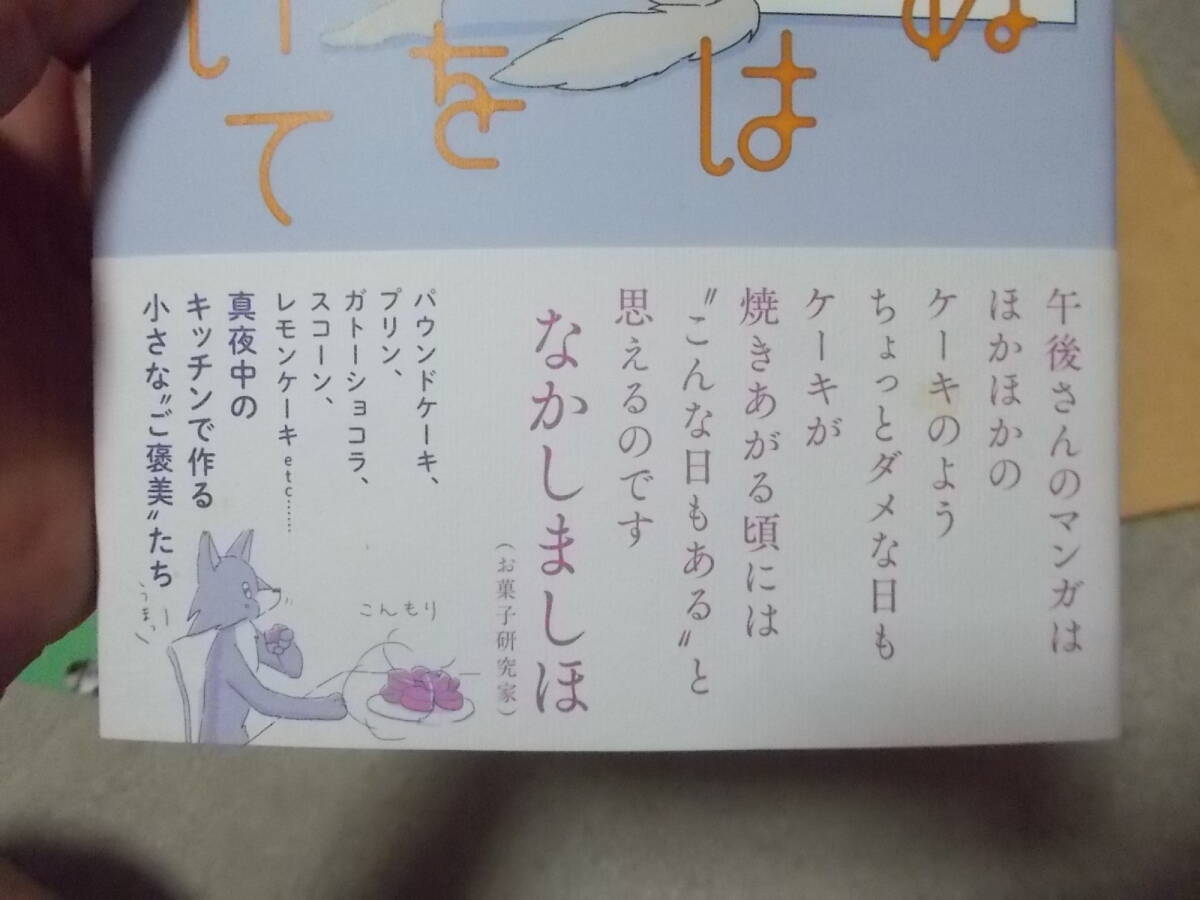 ぬ
は
を
いて
午後さんのマンガは
ほかほかの
ケーキのよう
ちょっとダメな日も
ケーキが
焼きあがる頃には
〝こんな日もある〟と
思えるのです
なかしましほ
（お菓子研究家）
パウンドケーキ、
プリン、
ガトーショコラ、
スコーン、
レモンケーキetc……
真夜中の
キッチンで作る
小さな〝ご褒美〟たち
こんもり
うまっ